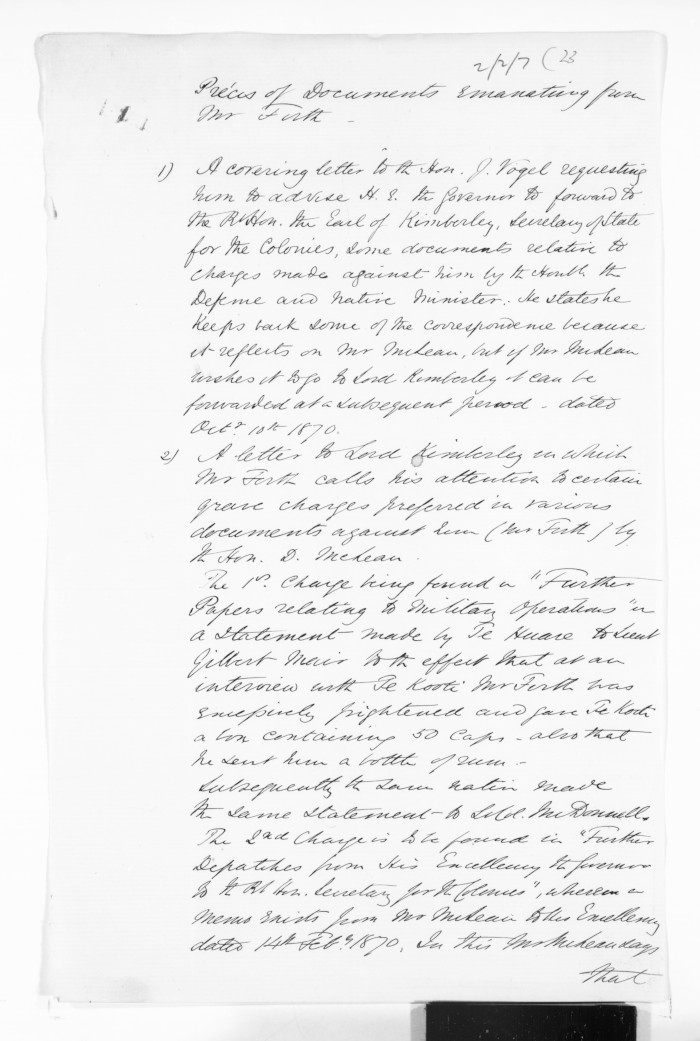 2/2/7 (23
Précis of Documents emanating from
Mr Firth -
1) A covering letter to th Hon. J. Vogel requesting
him to advise H. E. th Governor to forward to
the Rt Hon. the Earl of Kimberley, Secretary of State
for the Colonies, some documents relative to
charges made against him by th Honble the
Defence and Native Minister: He states he
keeps back some of the correspondence because
it reflects on Mr McLean, but if Mr McLean
wishes it to go to Lord Kimberley it can be
forwarded at a subsequent period - dated
Octr 10th 1870.
2) A letter to Lord Kimberley in which
Mr Firth calls his attention to certain
grave charges preferred in various
documents against him (Mr Firth) by
th Hon. D. McLean.
The 1st Charge being found in "Further
Papers relating to Military Operations" in
a statement made by Te Huare to Lieut
Gilbert Mair to th effect that at an
interview with Te Kooti Mr Firth was
excessively frightened and gave Te Kooti
a box containing 50 Caps - also that
he sent him a bottle of rum. -
Subsequently th same native made
the same statement to Lt Col. McDonnell.
The 2nd Charge is to be found in "Further
Depatches from His Excellency th Governor
to th Rt Hon. Secretary for th Colonies", wherein a
memo exists from Mr McLean to His Excellency
dated 14th Feby 1870. In this Mr McLean says
that